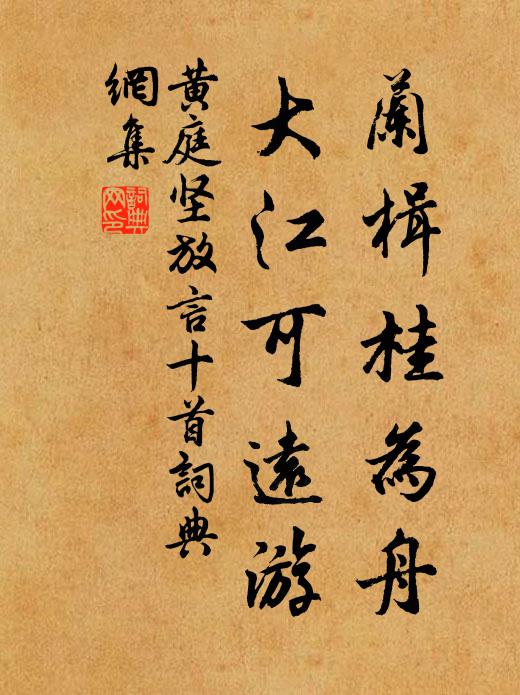 蘭楫桂為舟
大江可遠游
黃庭坚放言十首詞典
網集
詞典網印